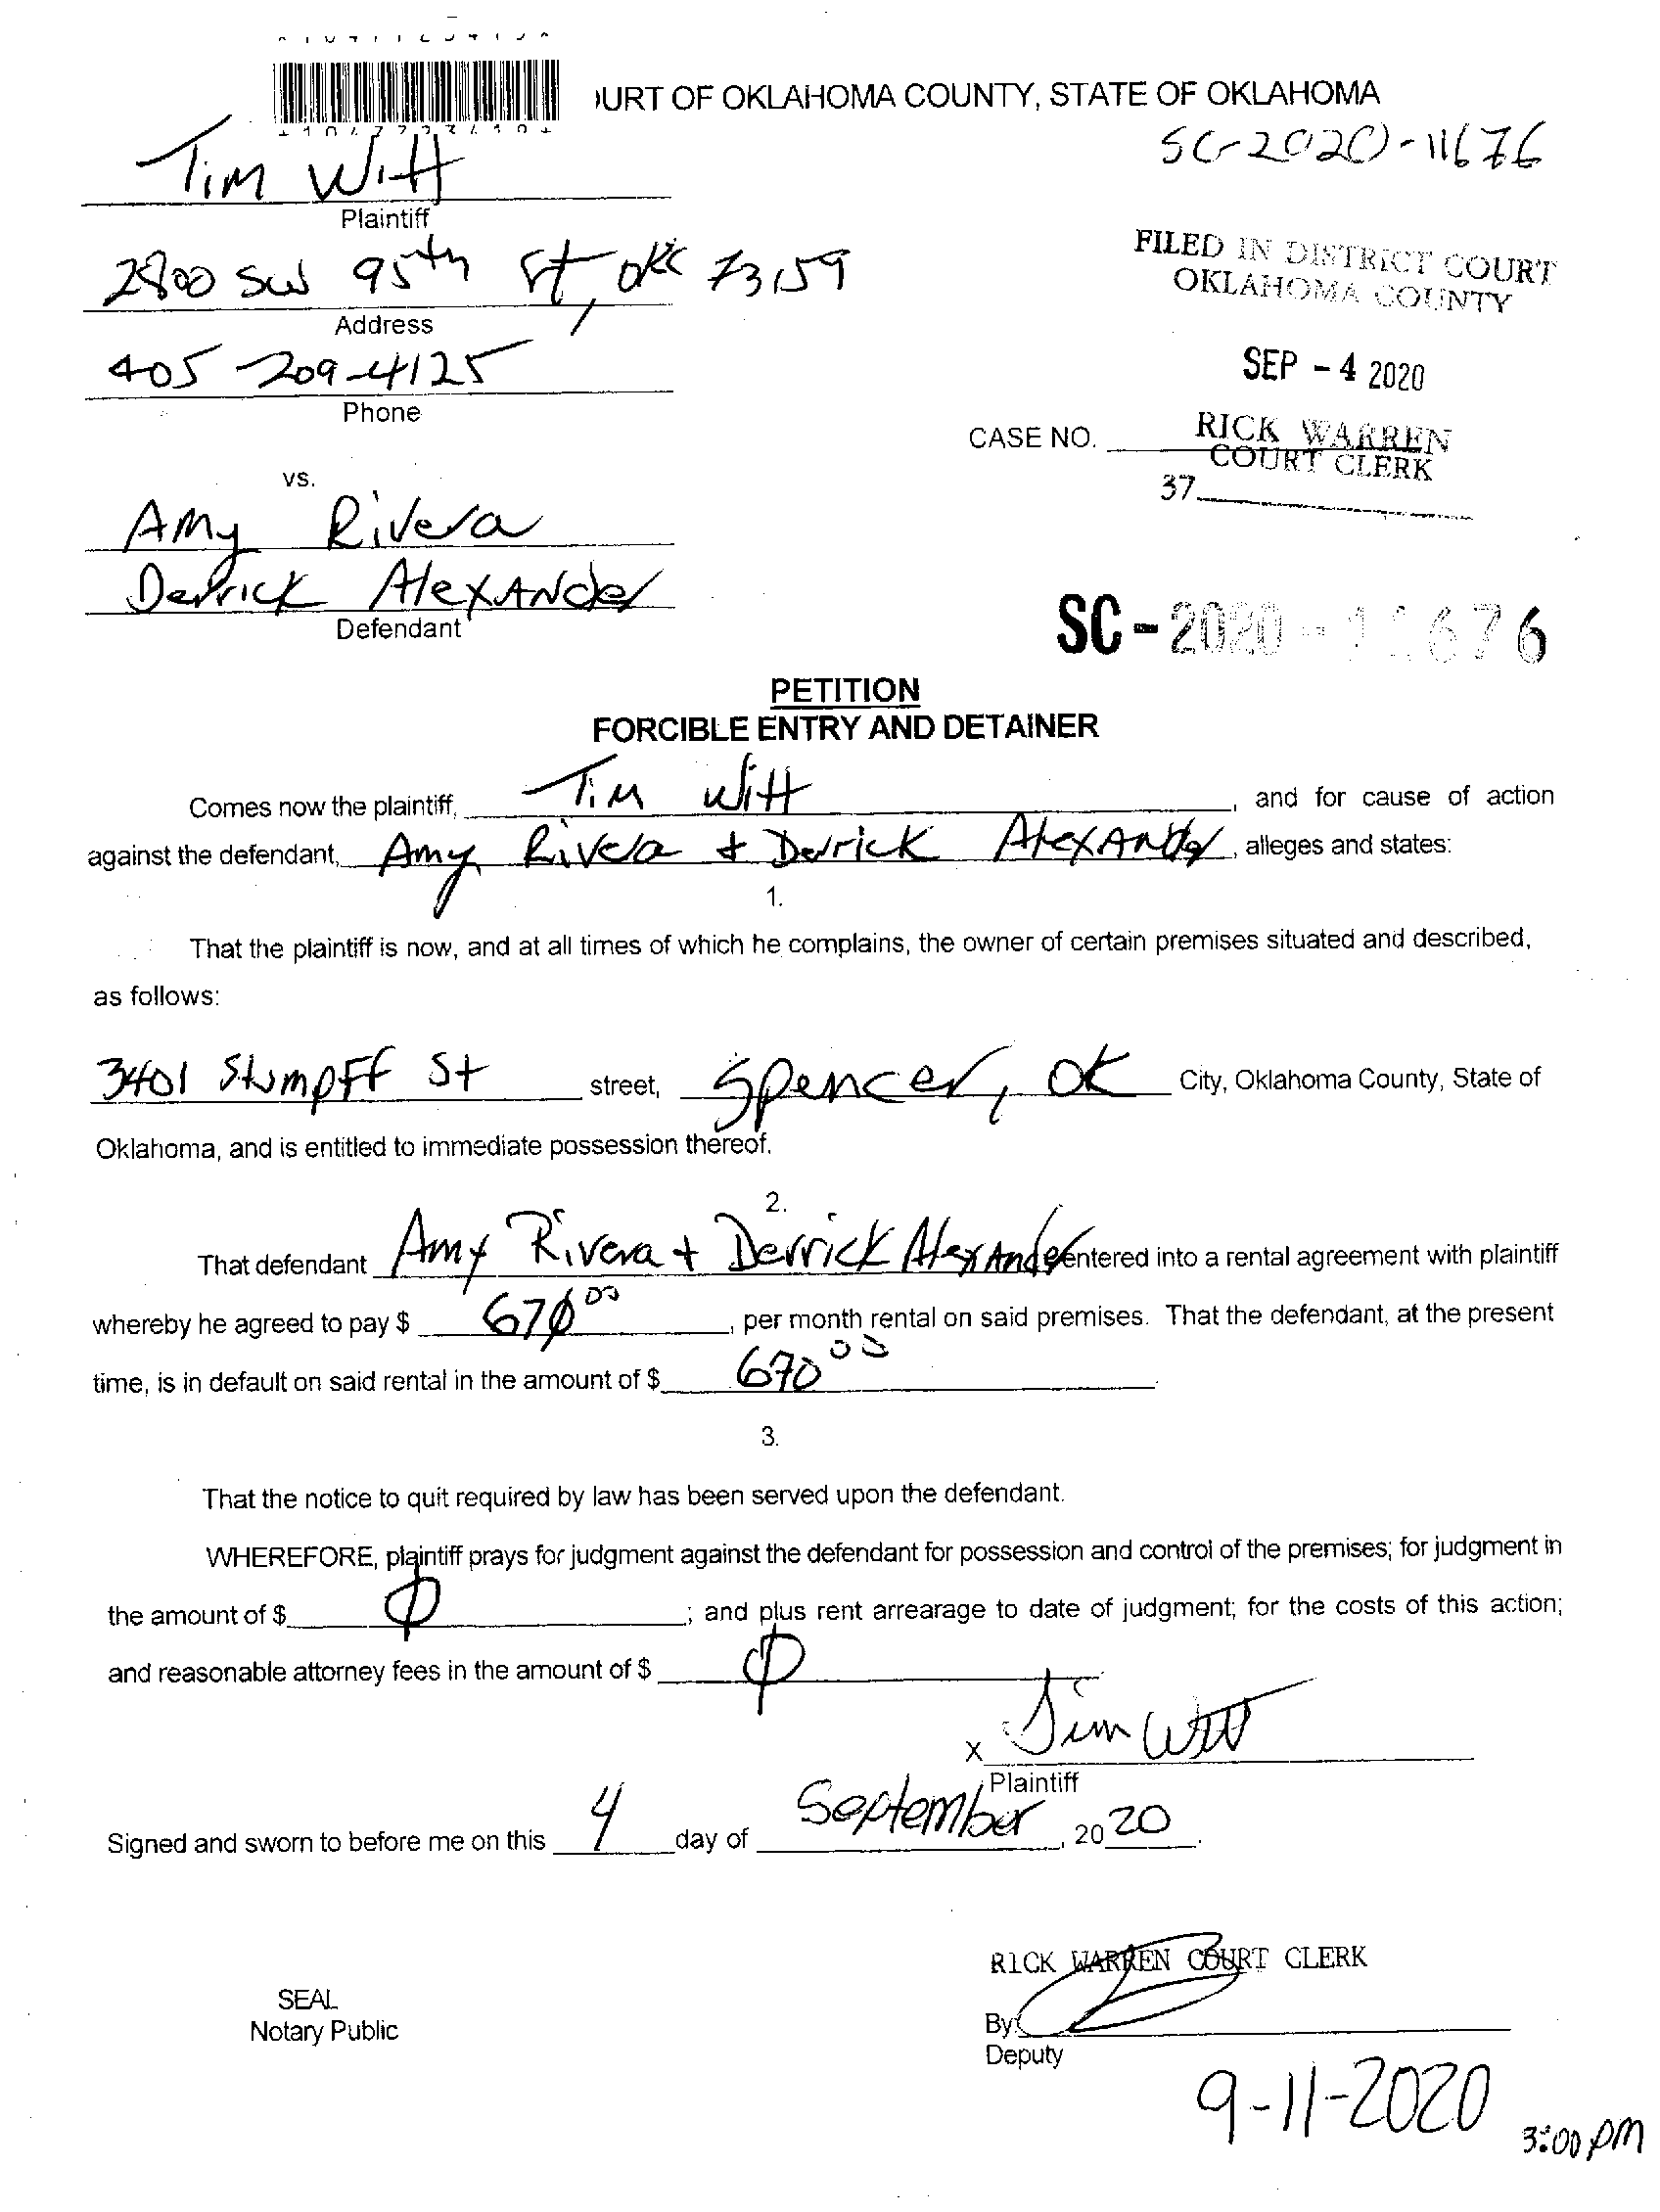 URT OF OKLAHOMA COUNTY, STATE OF OKLAHOMA
SC-2020-11676
Tim Witt
Plaintiff
2800 SW 95th St, OKC 73159
Address
FILED IN DISTRICT COURT
OKLAHOMA COUNTY
405-209-4125
Phone
SEP - 4 2020
CASE NO.
RICK WARREN
COURT CLERK
37
vs.
Amy Rivera
Derrick Alexander
Defendant
SC-2020-11676
PETITION
FORCIBLE ENTRY AND DETAINER
Comes now the plaintiff, Tim Witt, and for cause of action
against the defendant, Amy Rivera + Derrick Alexander, alleges and states:
1.
That the plaintiff is now, and at all times of which he complains, the owner of certain premises situated and described,
as follows:
3401 Stumpff St street, Spencer, OK City, Oklahoma County, State of
Oklahoma, and is entitled to immediate possession thereof.
2.
That defendant Amy Rivera + Derrick Alexander entered into a rental agreement with plaintiff
whereby he agreed to pay $ 670 00, per month rental on said premises. That the defendant, at the present
time, is in default on said rental in the amount of $ 670 00.
3.
That the notice to quit required by law has been served upon the defendant.
WHEREFORE, plaintiff prays for judgment against the defendant for possession and control of the premises; for judgment in
the amount of $ ϕ; and plus rent arrearage to date of judgment; for the costs of this action;
and reasonable attorney fees in the amount of $ ϕ
x Tim Witt
Plaintiff
Signed and sworn to before me on this 4 day of September, 2020.
RICK WARREN COURT CLERK
SEAL
Notary Public
By:
Deputy
9-11-2020
3:00 PM